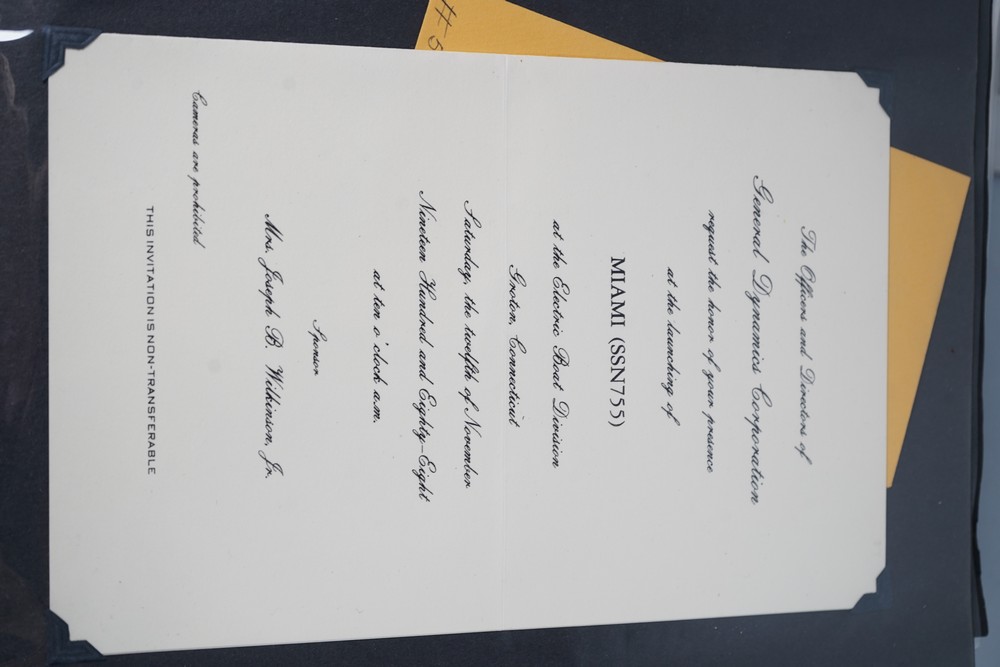 The Officers and Directors of
General Dynamics Corporation
request the honor of your presence
at the launching of
MIAMI (SSN755)
at the Electric Boat Division
Groton, Connecticut
Saturday, the twelfth of November
Nineteen Hundred and Eighty-Eight
at ten o'clock a.m.
Sponsor
Mrs. Joseph B. Wilkinson, Jr.
Cameras are prohibited
THIS INVITATION IS NON-TRANSFERABLE